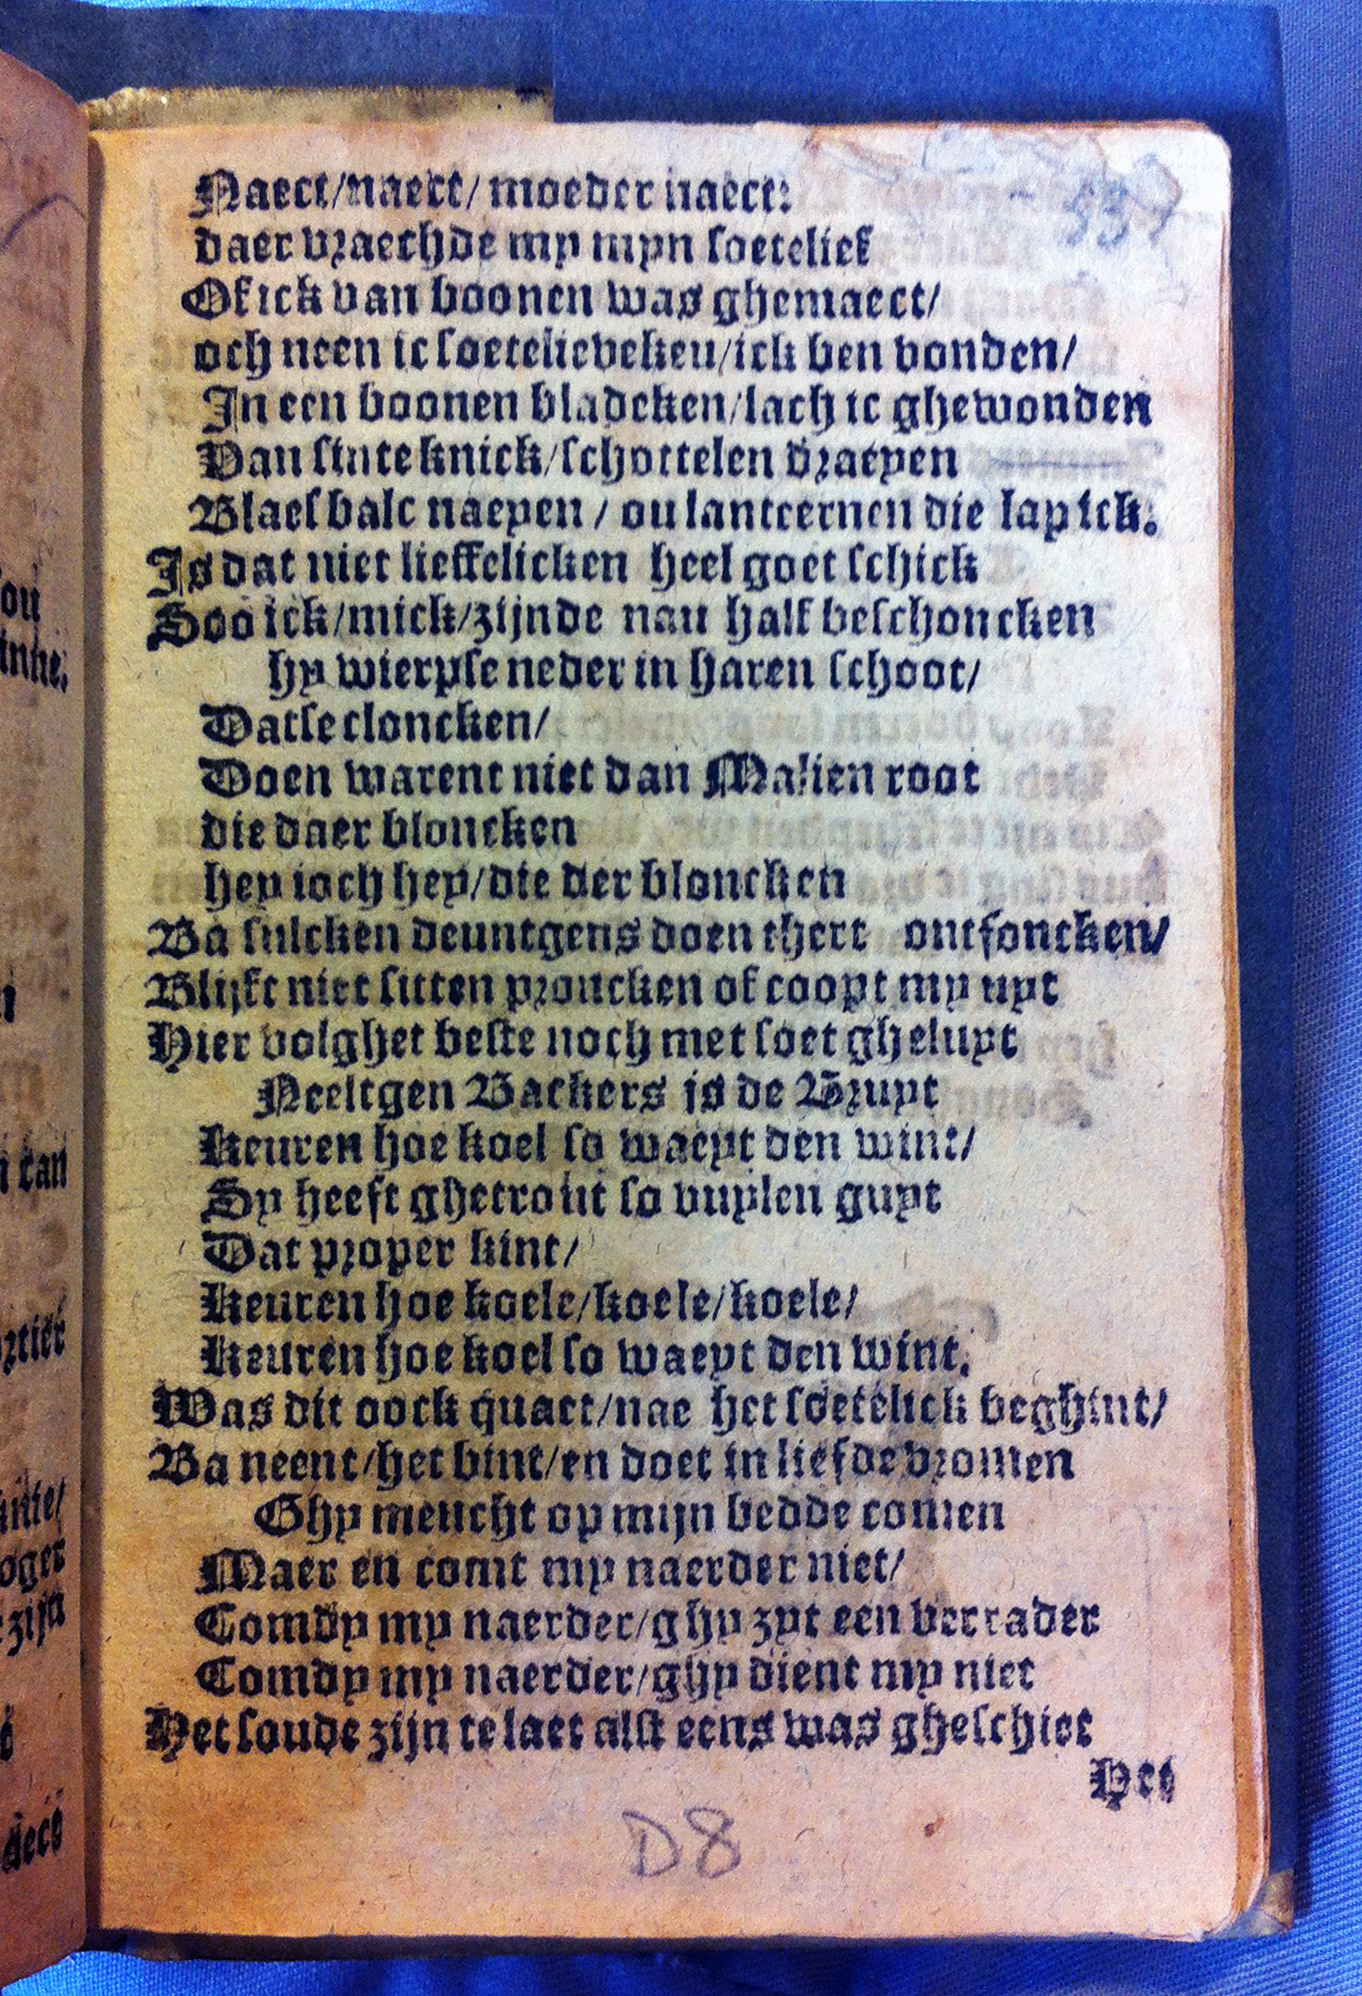 Naect/naect/ moeder naect:
daer vraechde my myn soetelief
Of ick van boonen was ghemaect/
och neen ic soetelievekeu/ick ben vonden/
In een boonen bladcken/lach ic ghewonden
Van sinte knick/schottelen draeyen
Blaesbalc naeyen / ou lanteernen die lap ick.
Is dat niet lieffelicken heel goet schick
Soo ick/mick/zijnde nau half beschoncken
hy wierpse neder in haren schoot/
Datse cloncken/
Doen warent niet dan Malien root
die daer bloncken
hey ioch hey/die der bloncken
Ba sulcken deuntgens doen thert ontfoncken/
Blijft niet sitten proncken of coopt my uyt
Hier volghet beste noch met soet gheluyt
Neeltgen Backers is de Bruyt
Keuren hoe koel so waeyt den wint/
Sy heeft ghetrout so vuylen guyt
Dat proper kint/
Keuren hoe koele/koele/koele/
Keuren hoe koel so waeyt den wint.
Was dit oock quaet/nae het soetelick beghint/
Ba neent/het bint/en doet in liefde vromen
Ghy meucht op mijn bedde comen
Maer en comt my naerder niet/
Comdy my naerder/ghy zyt een verrader
Comdy my naerder/ghy dient my niet
Het soude zijn te laet alst eens was gheschiet
Het
D8